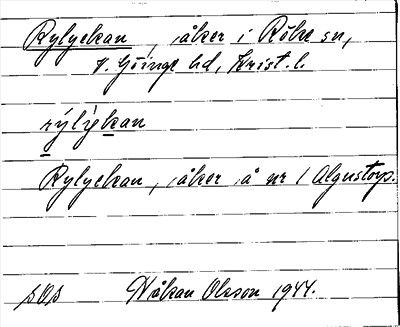 Rylyckan, åker i Röke sn,
V. Göinge hd, Krist. l.
rýlỳkan
Rylyckan, åker å nr 1 Algustorp.
SOS Håkan Olsson 1944.